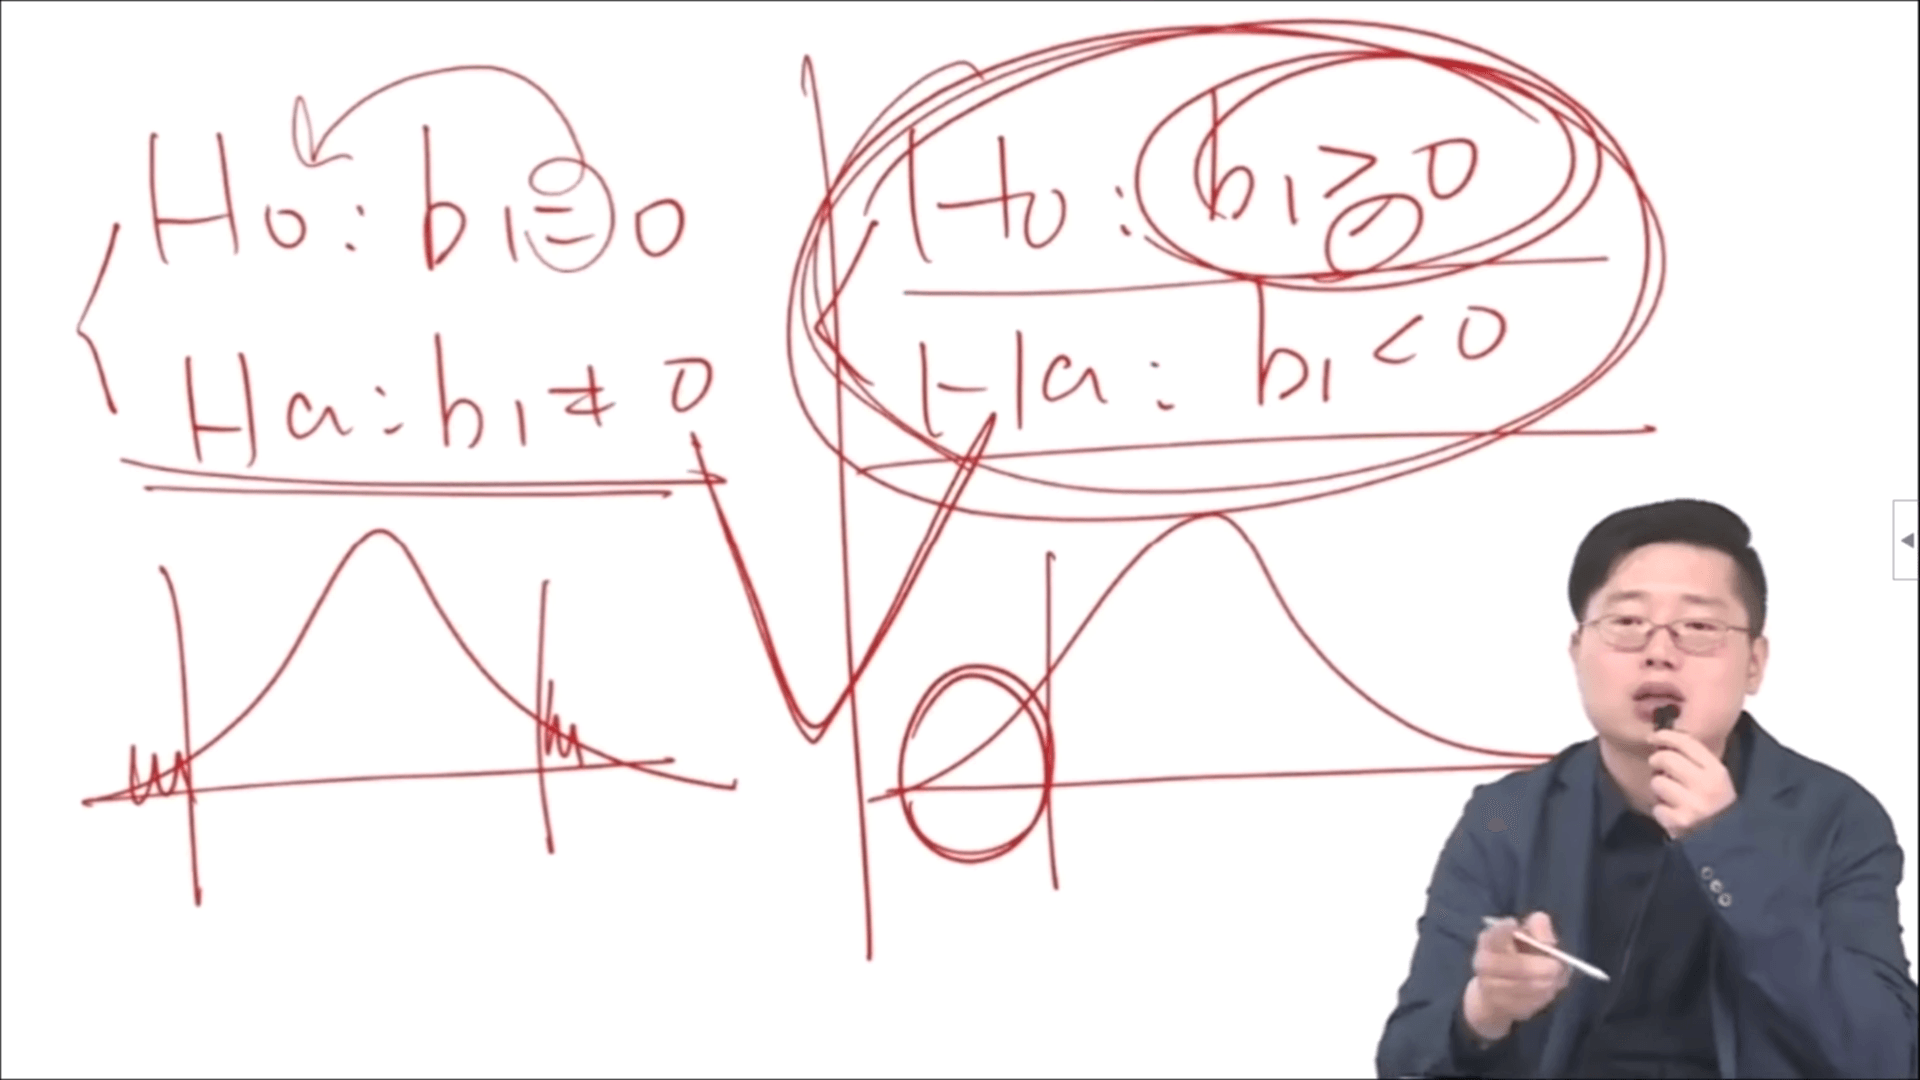 Ho: b1 = 0
Ha: b1 ≠ 0
Ho: b1 ≥ 0
Ha: b1 < 0